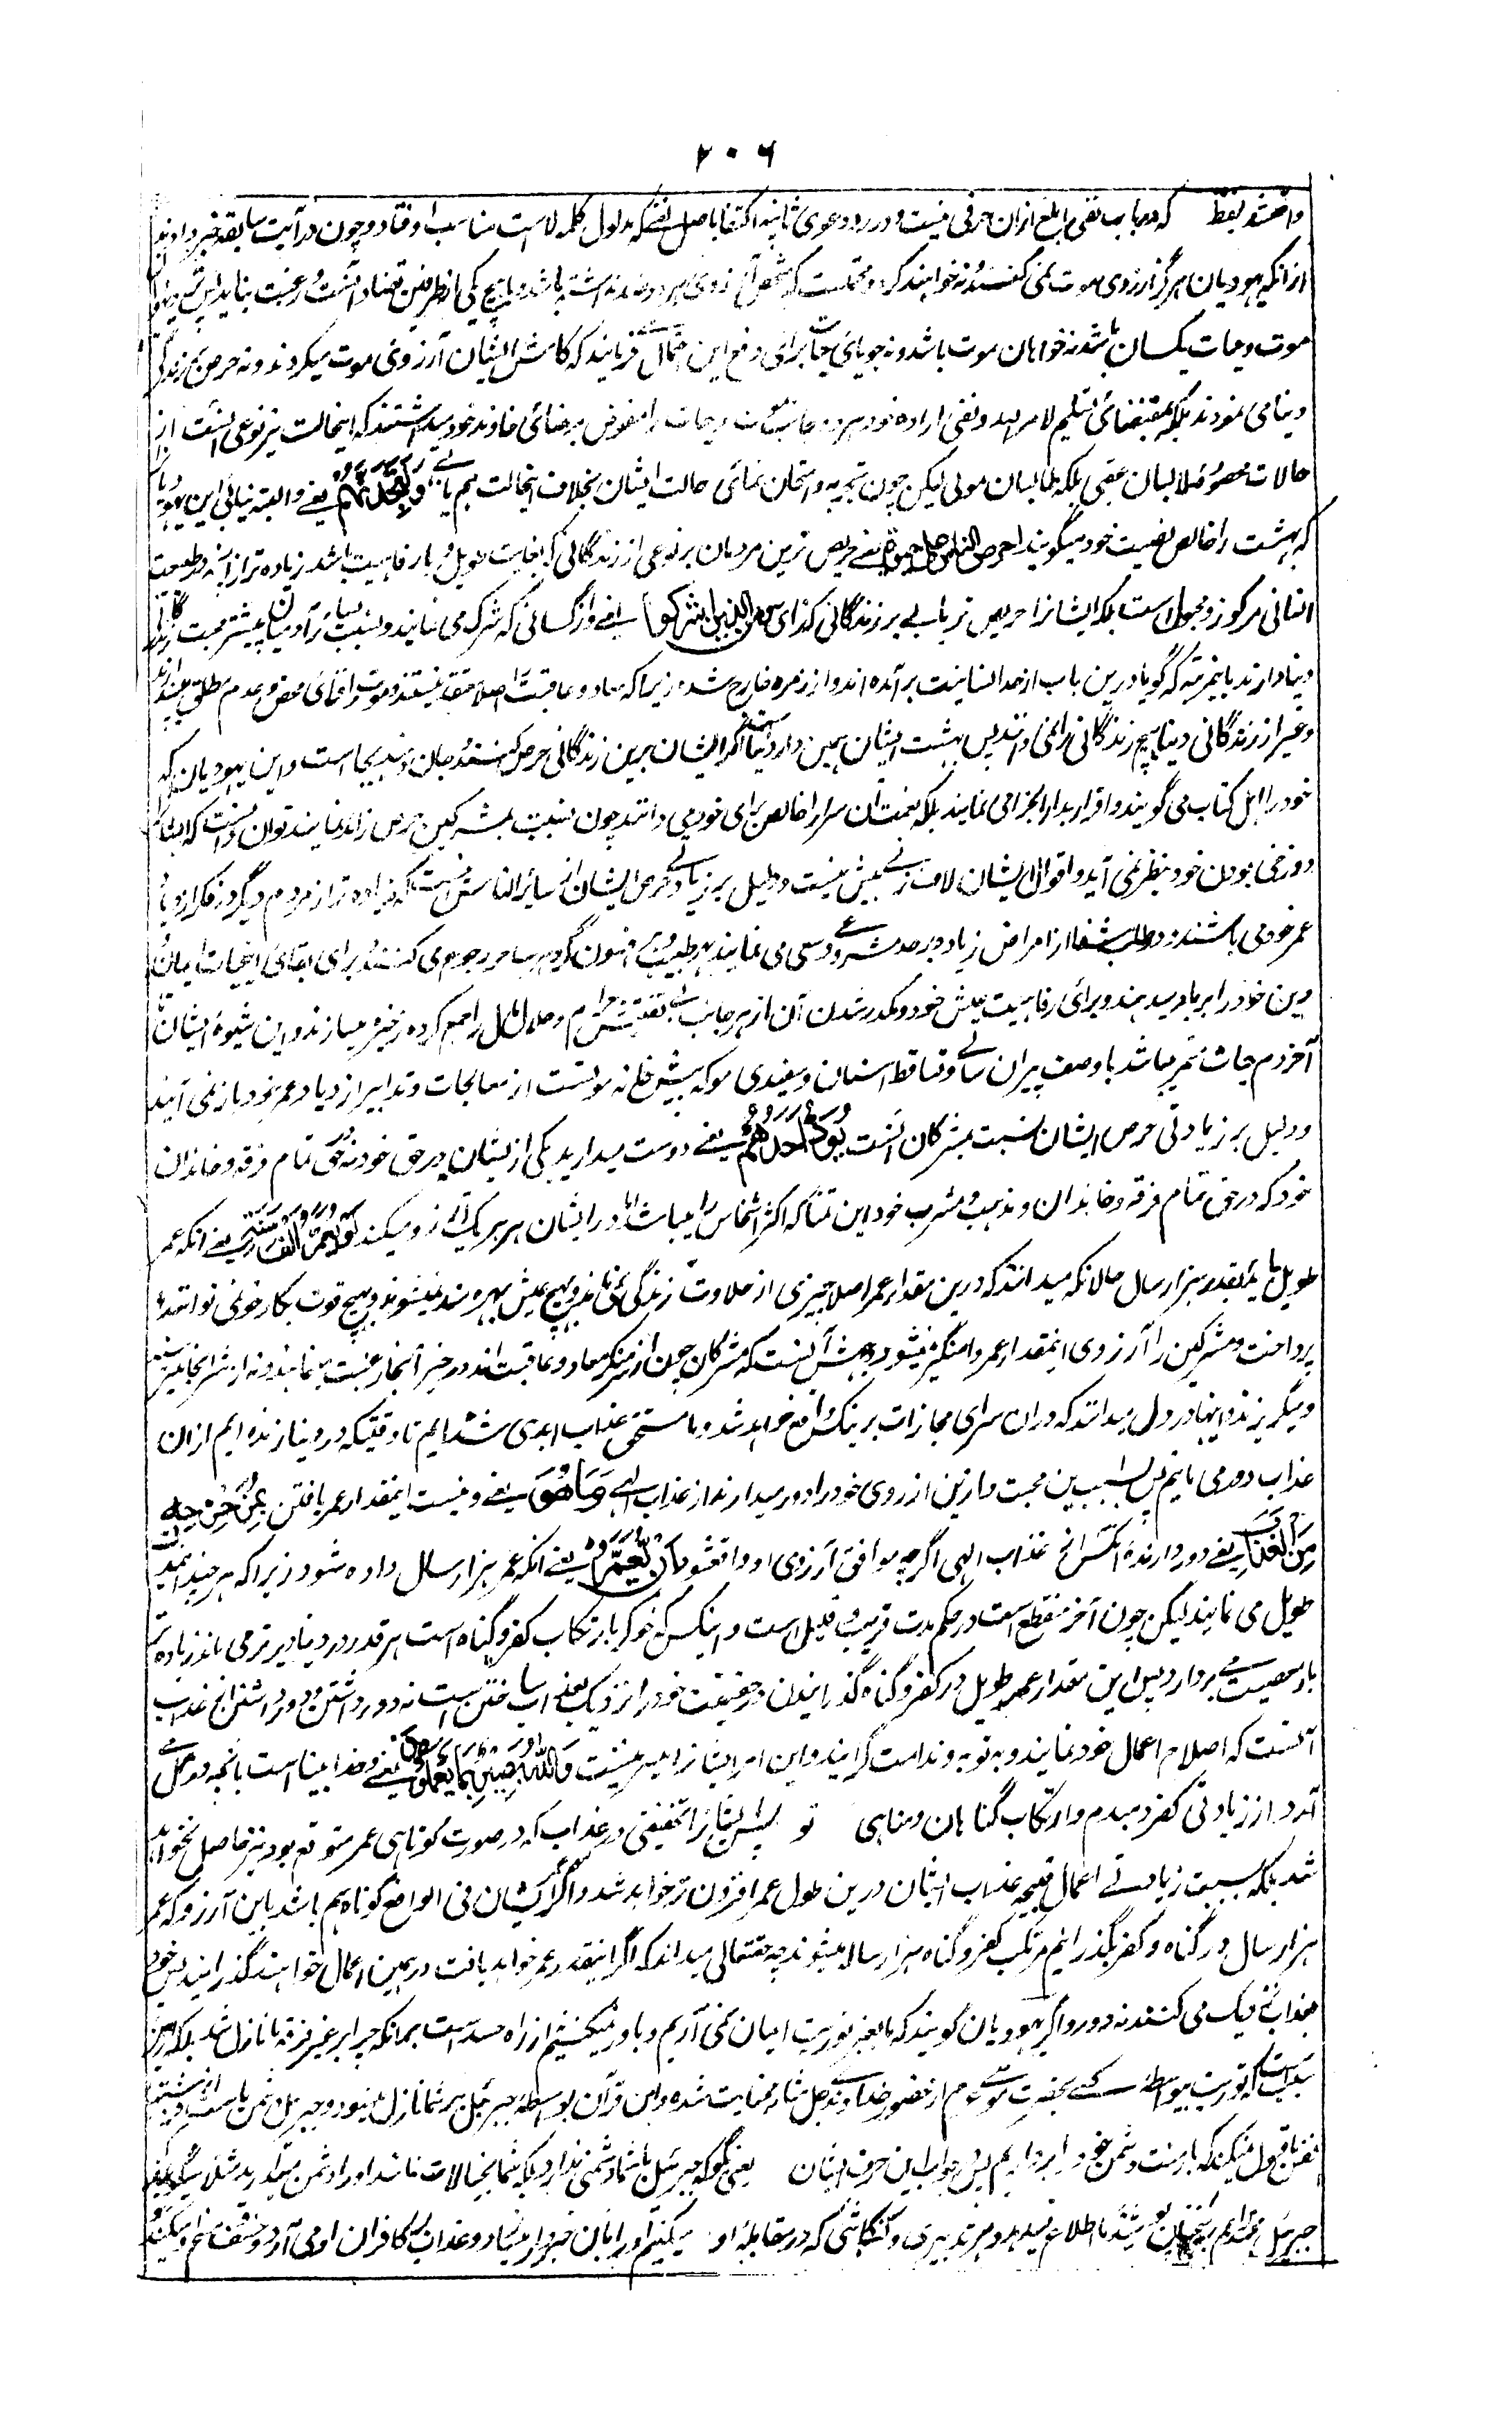 ۲۰۶
واقعشد بفقط که در باب نفی ابلغ ازان حرفی نیست و در رد دعوی ثانیه اکتفا باصل نفی که مدلول کلمه لاست مناسب افتاد و چون در آیت سابقه خبر دادند
از آنکه یهودیان هرگز آرزوی موت نمی کنند و نخواهند کرد و محتملست که شخصی آرزوی هر دو ضد نداشته باشد و بهیچ یکی از طرفین تضاد رغبت ننماید پس
موت و حیات یکسان باشد نه خواهان موت باشد و نه جویای حیات برای دفع این احتمال می فرمایند که کاش ایشان آرزوی موت میکردند و نه حرص بر زندگی
دنیا می نمودند بلکه بمقتضای تسلیم لامر الله و نفی اراده خود هر دو جانب موت و حیات را مفوض برضای خاوند خود میداشتند که اینحالت نیز نوعی است از
حالات محموده طالبان عقبی بلکه طالبان مولی لیکن چون تجربه و امتحان نمائی حالت ایشان بخلاف اینحالت هم یابی وَلَتَجِدَنَّهُمْ یعنی و البته بیابی این یهود را
که بهشت را خالص نصیب خود میگویند احرص الناس علی حیوة یعنی حریص ترین مردمان بر نوعی از زندگانی که بغایت طویل و با رفاهیت باشد زیاده تر از آنچه در طبیعت
انسانی مرکوز و مجبول است بلکه ایشانرا حریص تر یابی بر زندگانی کذائی ومن الذین اشرکوا یعنی و از کسانی که شرک می نمایند و نسبت بسائر آدمیان بیشتر محبت زندگانی
دنیا دارند باینمرتبه که گویا درین باب از حد انسانیت برآمده اند و از زمره خارج شده زیرا که معاد و عاقبت را اصلا معتقد نیستند و موت را فنای محض و عدم مطلق
و غیر از زندگانی دنیا هیچ زندگانی را نمی دانند پس بهشت ایشان همین دار دنیاست اگر ایشان برین زندگانی حرص کنند و جان دهند بجا است و این یهودیان که
خود را اهل کتاب می گویند و اقرار بدار الجزا می نمایند بلکه نعمت آن سرا را خالص برای خود می دانند چون نسبت بمشرکین حرص زائد نمایند توان دانست که ایشانرا
دوزخی بودن خود بنظر نمی آید و اقوال ایشان لاف زنی بیش نیست و دلیل بر زیادتی حرص ایشان از سائر الناس اینست که زیاده تر از مردم دیگر در فکر ازدیاد
عمر خود می باشند و در طلب شفا از امراض زیاده بر حد مشروع سعی می نمایند بهر طبیب و افسون گر و هر ساحر رجوع می کنند و برای ابقای اینحیات ایمان و
دین خود را برباد میدهند و برای رفاهیت عیش خود و مکدر نشدن آن از هر جانب بی تفتیش حرام و حلال مال را جمع کرده ذخیره میسازند و این شیوه ایشان تا
آخر دم حیات مستمر میباشد با وصف پیران سالی و تساقط اسنان و سفیدی مو که پیش خانه موتست از معالجات و تدابیر ازدیاد عمر خود باز نمی آیند
و دلیل بر زیادتی حرص ایشان نسبت بمشرکان آنست یَوَدُّ اَحَدُهُمْ یعنی دوست میدارد یکی از ایشان در حق خود نه در حق تمام فرقه و خاندان
خود که در حق تمام فرقه و خاندان و مذهب و مشرب خود این تمنا که اکثر اشخاص را میباشد اما در ایشان هر یک آرزو میکند لَوْ یُعَمَّرُ اَلْفَ سَنَةٍ یعنی آنکه عمر
طویل یابد بقدر هزار سال حالانکه میدانند که درین مقدار عمر اصلا چیزی از حلاوت زندگی نمی ماند و بهیچ عیش بهره مند نمیشوند و هیچ قوت بکار خود نمی توانند
پرداخت و مشرکین را آرزوی اینمقدار عمر دامنگیر نمیشود و وجهش آنست که مشرکان چون منکر معاد و عاقبت اند در خیر آنجا رغبت می نمایند و نه از شر آنجا میترسند
و میگریزند و اینها در دل میدانند که دران سرای مجازات بر نیک و بد واقع خواهد شد و ما مستحق عذاب ابدی شده ایم تا وقتیکه در دنیا زنده ایم ازان
عذاب دور می مانیم پس بسبب این محبت و ازین آرزوی خود را دور میدارند از عذاب الهی وَمَا هُوَ یعنی و نیست اینمقدار عمر یافتن بِمُزَحْزِحِهِ
مِنَ الْعَذَابِ یعنی دور دارنده آنکس از عذاب الهی اگرچه موافق آرزوی او واقعشود اَنْ یُعَمَّرَ یعنی آنکه عمر هزار سال داده شود زیرا که هرچند این مدت
طویل می نماید لیکن چون آخر منقطع است در حکم مدت قریب و قلیل است و اینکس که خوگر بارتکاب کفر و گناه است هرقدر در دنیا دیرتر می ماند زیاده تر
بار معصیت می بردارد پس این مقدار عمر طویل در کفر و گناه گذرانیدن در حقیقت خود را نزدیک بعذاب ساختن است نه دور داشتن و دور داشتن از عذاب
آنست که اصلاح اعمال خود نمایند و به توبه و ندامت گرایند و این امر ایشانرا میسر نیست وَاللّٰهُ بَصِیْرٌ بِمَا یَعْمَلُوْنَ یعنی و خدا بینا است بآنچه در عمل
آرند از زیادتی کفر دمبدم و ارتکاب گناهان و مناهی تو پس ایشانرا تخفیفی در عذاب که در صورت کوتاهی عمر متوقع بود نیز حاصل نخواهد
شد بلکه بسبب زیادتی اعمال قبیحه عذاب ایشان درین طول عمر افزون تر خواهد شد و اگر عمر ایشان فی الواقع کوتاه هم باشد باین آرزو که عمر
هزار سال در گناه و کفر بگذرانیم مرتکب کفر و گناه هزار ساله میشوند چه حقتعالی میداند که اگر اینقدر عمر خواهد یافت در همین اعمال خواهند گذرانید پس خود را
بعذاب نزدیک می کنند نه دور و اگر یهودیان گویند که ما بغیر توریت ایمان نمی آریم و باور نمیکنیم از راه حسد است بر آنکه چرا بر غیر فرقه ما نازل شد بلکه ازین
سبب است که توریت بیواسطه کسی بحضرت موسی ع م از حضور خداوند جل شانه عنایت شده و این قرآن بواسطه جبرئیل بر شما نازل میشود و جبرئیل دشمن ماست
نفس ما قبول نمیکند که بار منت دشمن خود را برداریم پس جواب این حرف ایشان یعنی بگو که جبرئیل با شما دشمنی ندارد بلکه شما بخیالات فاسد او را دشمن میدارید مثلا میگوئید
جبرئیل محمد را بر سخنان پوشیده ما اطلاع میدهد و هر تدبیری و کنگاشی که در مقابله او میکنیم او را بآن خبردار میسازد و عذاب بر کافران او می آرد و خسف و مسخ او میکند و